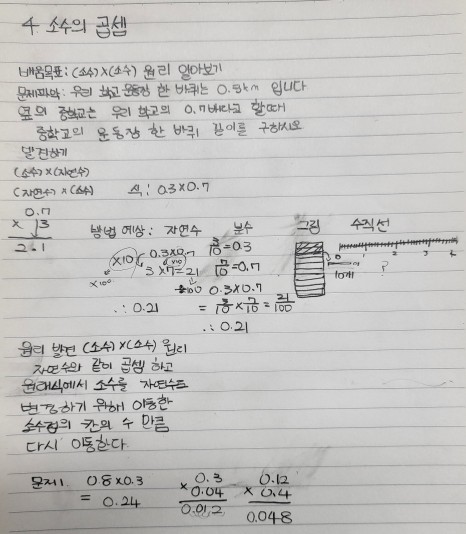 4 소수의 곱셈
배움목표: (소수)×(소수) 원리 알아보기
문제파악: 우리 학교 운동장 한 바퀴는 0.3km 입니다
옆의 중학교는 우리 학교의 0.7배라고 할때
중학교의 운동장 한 바퀴 길이를 구하시오
발견하기
(소수)×(자연수)
(자연수)×(소수) 식: 0.3×0.7
0.7
× 13
2.1
방법 예상: 자연수 분수 그림 수직선
×10 0.3×0.7 ×10 3/10=0.3
×100 3×7=21 7/10=0.7
÷100 0.3×0.7
∴ 0.21 = 3/10 × 7/10 = 21/100
∴ 0.21
0 1 2 3 4
10개 ?
원리 발견 (소수)×(소수) 원리
자연수와 같이 곱셈 하고
원래식에서 소수를 자연수로
변경하기 위해 이동한
소수점의 칸의 수 만큼
다시 이동한다
문제1. 0.8×0.3
= 0.24
0.3
× 0.04
0.012
0.12
× 0.4
0.048